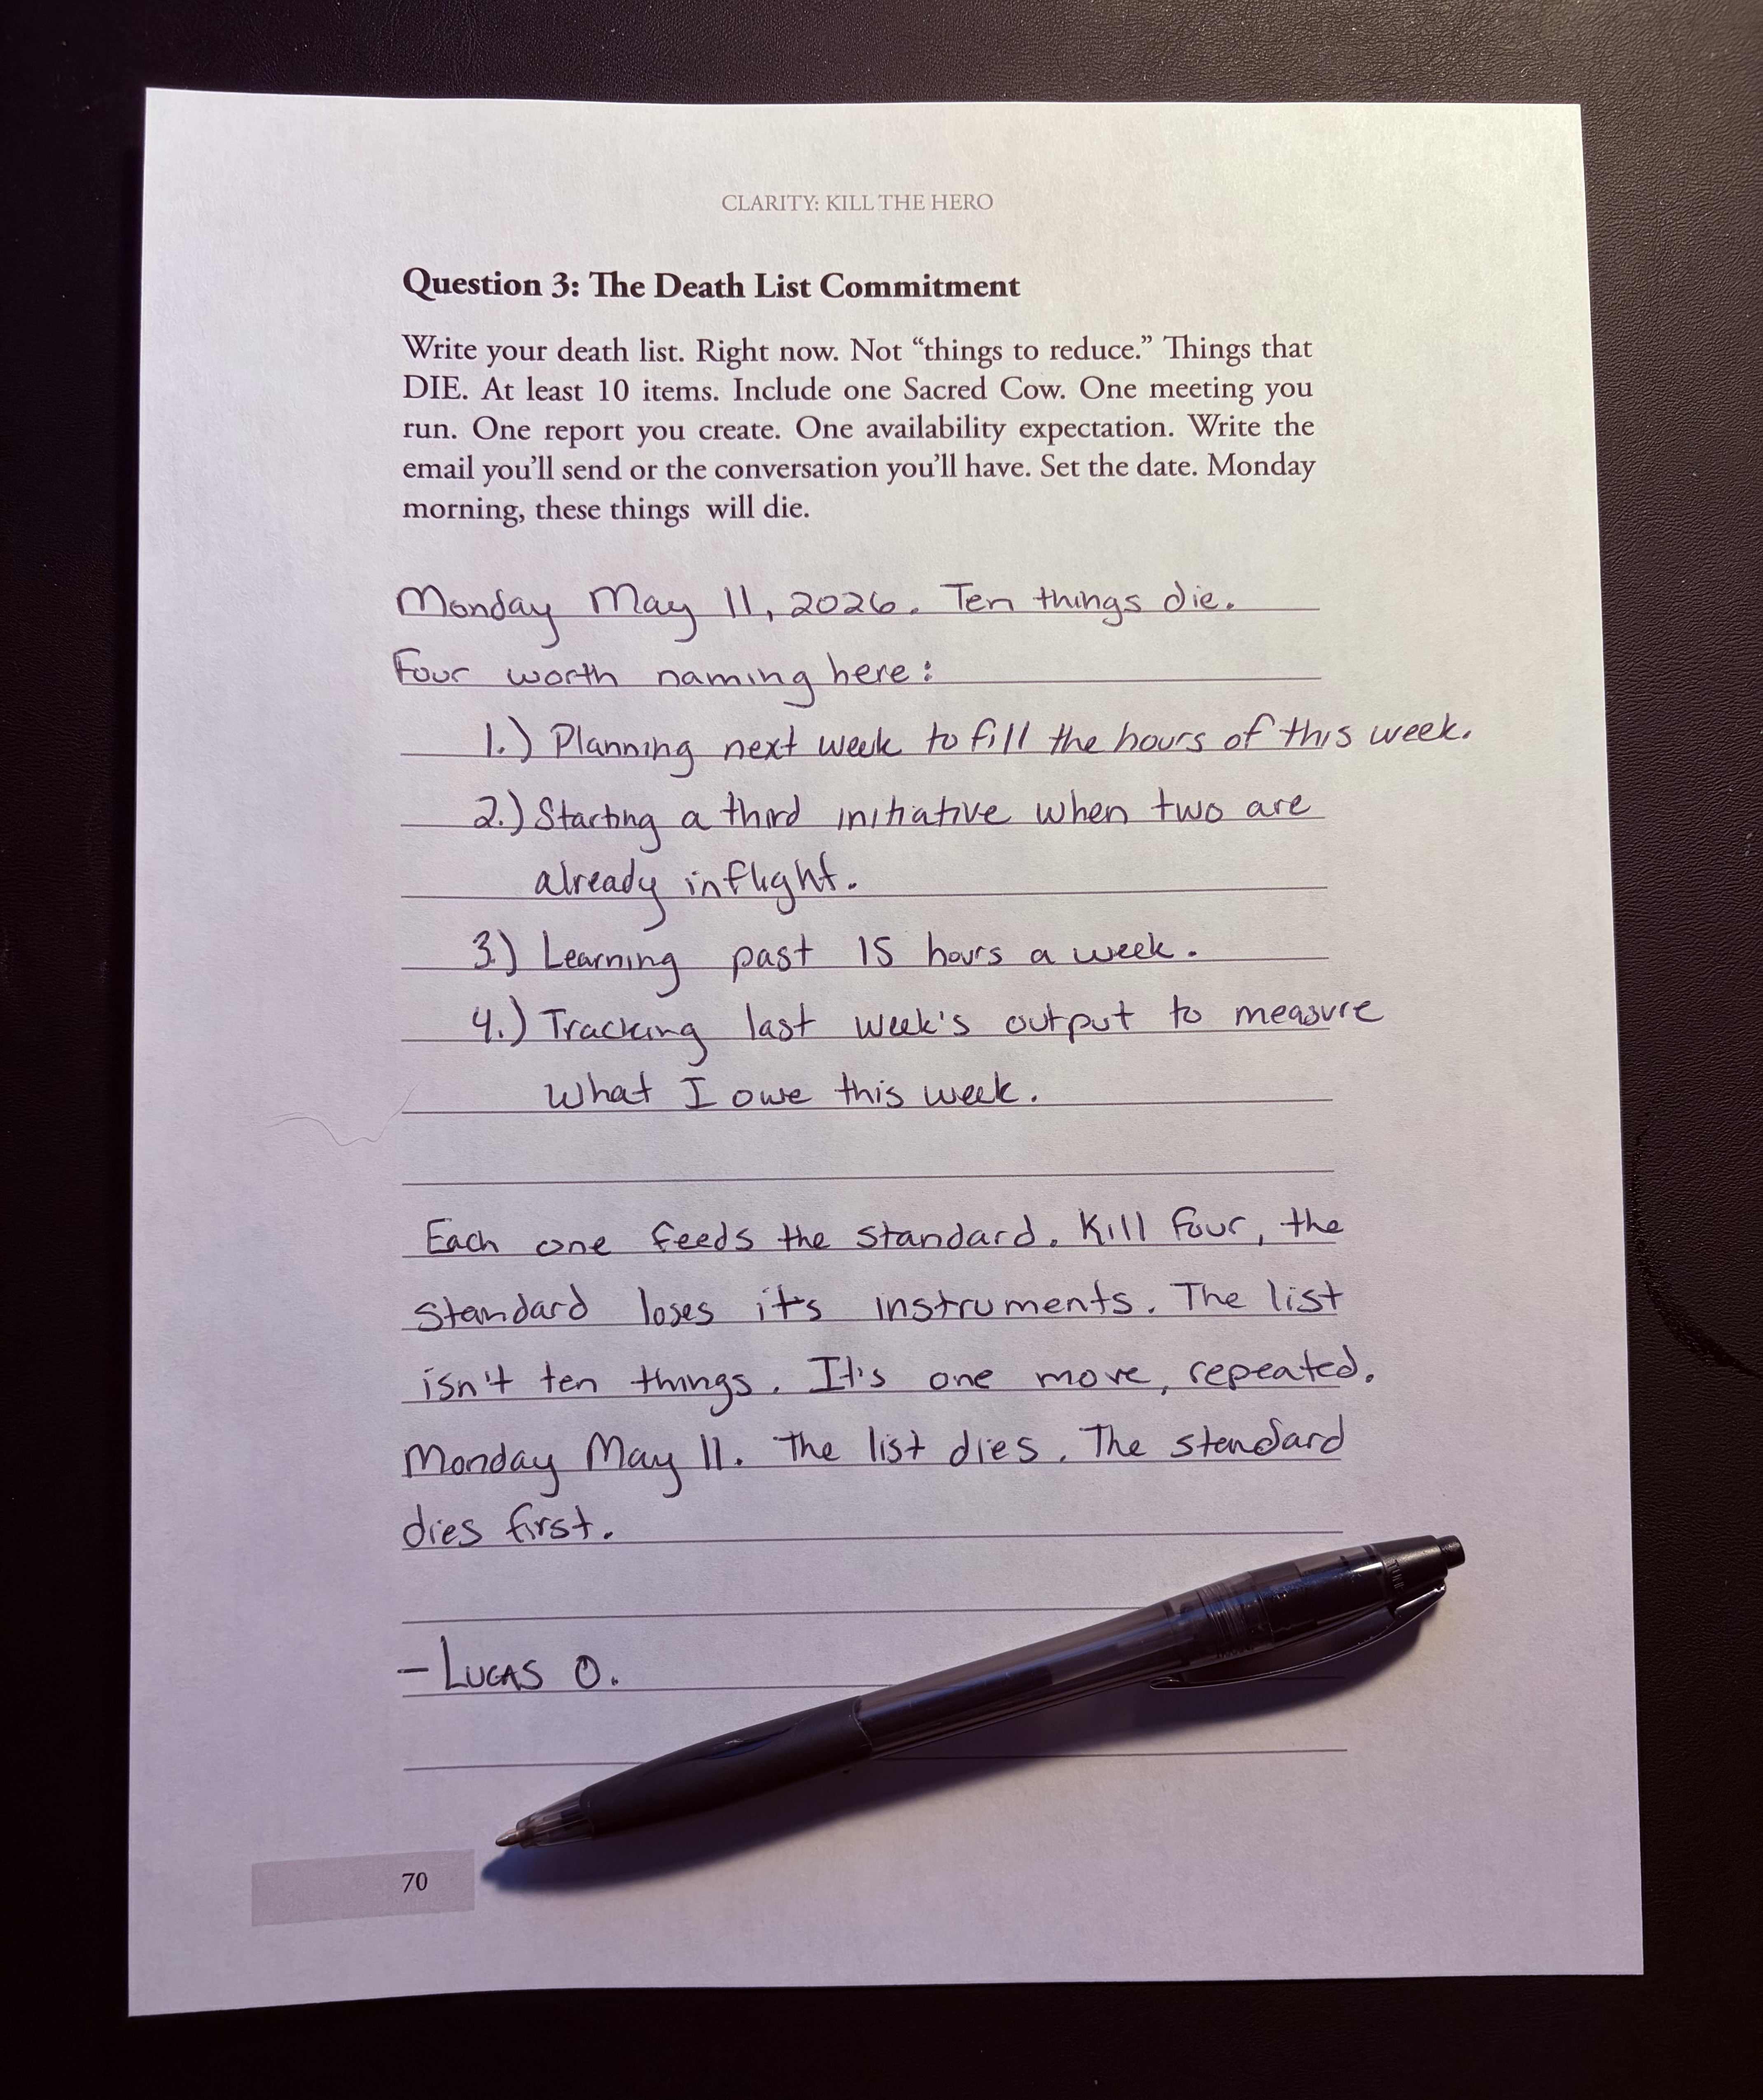 CLARITY: KILL THE HERO
Question 3: The Death List Commitment
Write your death list. Right now. Not “things to reduce.” Things that
DIE. At least 10 items. Include one Sacred Cow. One meeting you
run. One report you create. One availability expectation. Write the
email you’ll send or the conversation you’ll have. Set the date. Monday
morning, these things will die.
Monday May 11, 2026. Ten things die.
Four worth naming here:
1.) Planning next week to fill the hours of this week.
2.) Starting a third initiative when two are
already inflight.
3.) Learning past 15 hours a week.
4.) Tracking last week's output to measure
what I owe this week.
Each one feeds the standard. Kill four, the
standard loses it's instruments. The list
isn't ten things. It's one move, repeated.
Monday May 11. The list dies. The standard
dies first.
- LUCAS O.
70